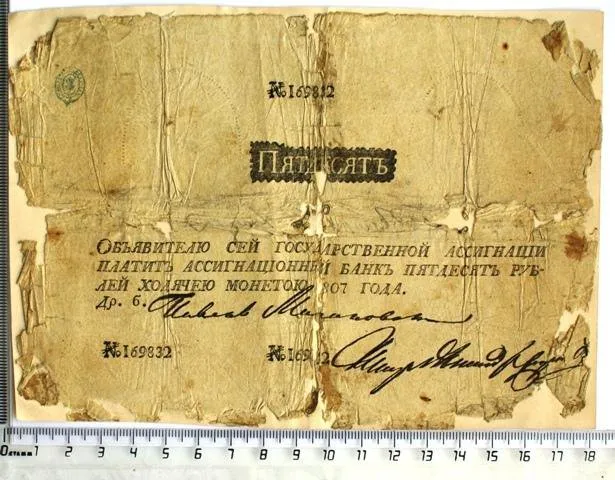 №169832
ПЯТДЕСЯТЪ
ОБЪЯВИТЕЛЮ СЕЙ ГОСУДАРСТВЕННОЙ АССИГНАЦIИ
ПЛАТИТЪ АССИГНАЦIОННЕЙ БАНКЪ ПЯТДЕСЯТЬ РУБ-
ЛЕЙ ХОДЯЧЕЮ МОНЕТОЮ 807 ГОДА.
ДР. б. Павелъ
№169832 №169832
0 1 2 3 4 5 6 7 8 9 10 11 12 13 14 15 16 17 18